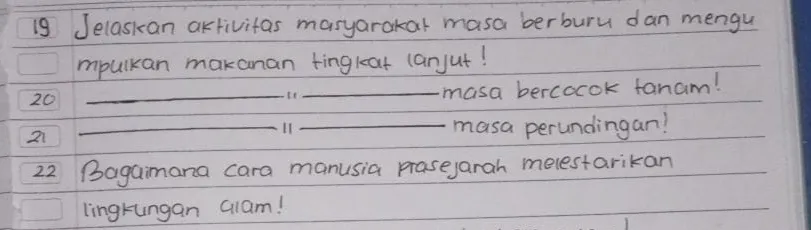 19 Jelaskan aktivitas masyarakat masa berburu dan mengu
mpulkan makanan tingkat lanjut!
20 ———— " ———— masa bercocok tanam!
21 ———— " ———— masa perundingan!
22 Bagaimana cara manusia prasejarah melestarikan
lingkungan alam!